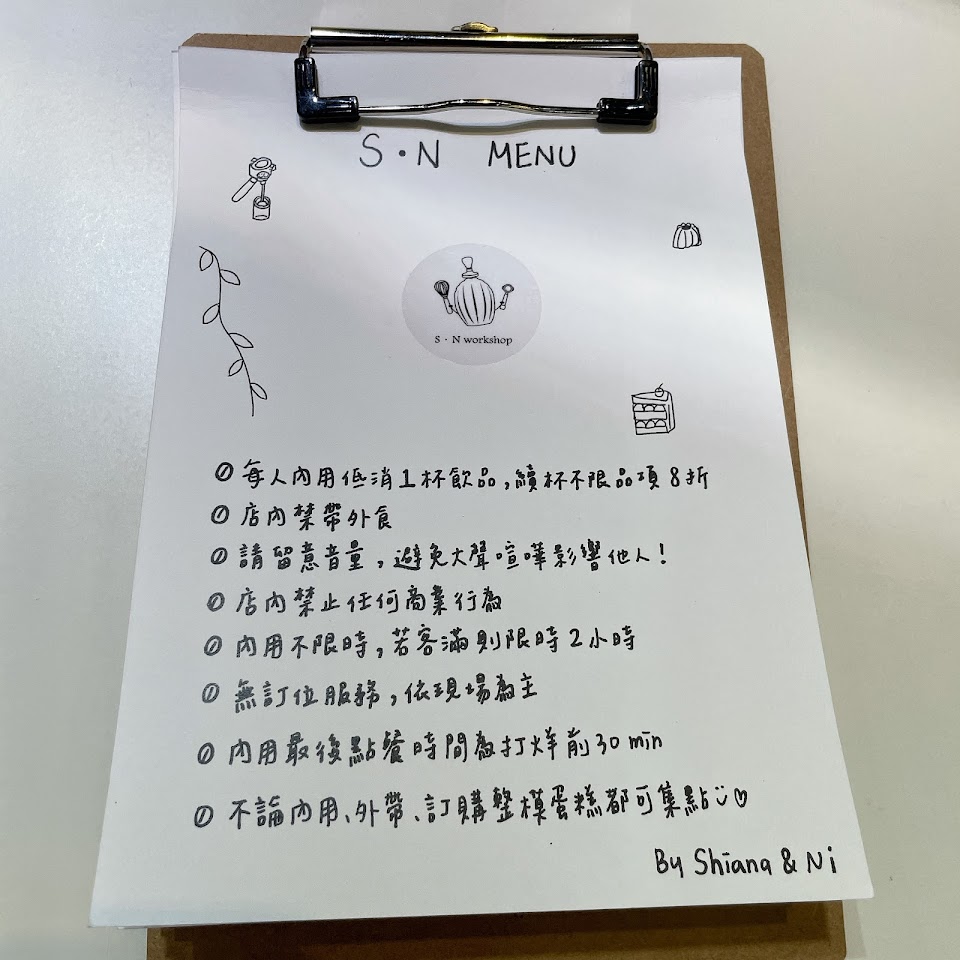 S·N MENU
S·N workshop
每人內用低消1杯飲品,續杯不限品項8折
店內禁帶外食
請留意音量,避免大聲喧嘩影響他人!
店內禁止任何商業行為
內用不限時,若客滿則限時2小時
無訂位服務,依現場為主
內用最後點餐時間為打烊前30min
不論內用、外帶、訂購整模蛋糕都可集點
By Shiana & Ni